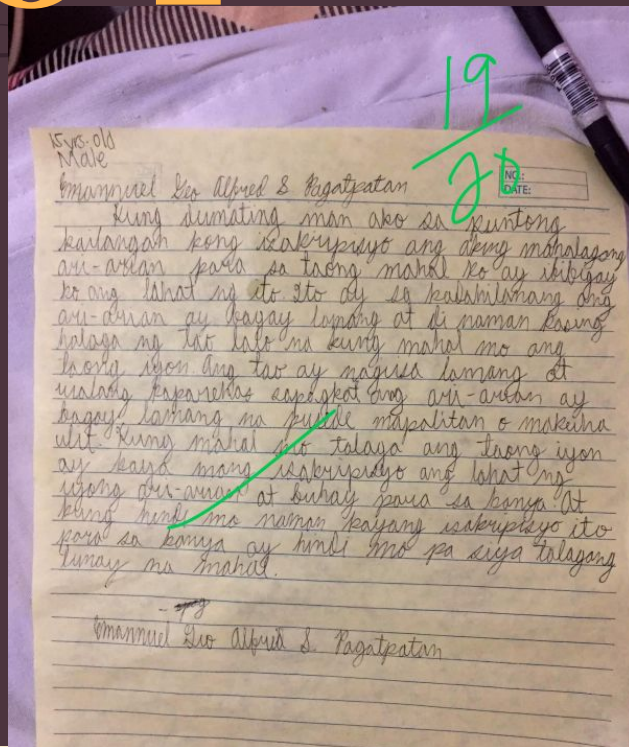 19
20
15 yrs. old
Male
NO.:
DATE:
Emannuel Geo Alfred S. Pagatpatan
Kung dumating man ako sa puntong
kailangan kong isakripisyo ang aking mahalagang
ari-arian para sa taong mahal ko ay ibibigay
ko ang lahat ng ito. Ito ay sa kadahilanang ang
ari-arian ay bagay lamang at di naman kasing
halaga ng tao lalo na kung mahal mo ang
taong iyon. Ang tao ay nagiisa lamang at
walang kaparehas sapagkat ang ari-arian ay
bagay lamang na pwede mapalitan o makuha
ulit. Kung mahal mo talaga ang taong iyon
ay kaya mong isakripisyo ang lahat ng
iyong ari-arian at buhay para sa kanya. At
kung hindi mo naman kayang isakripisyo ito
para sa kanya ay hindi mo pa siya talagang
tunay na mahal.
Emannuel Geo Alfred S. Pagatpatan